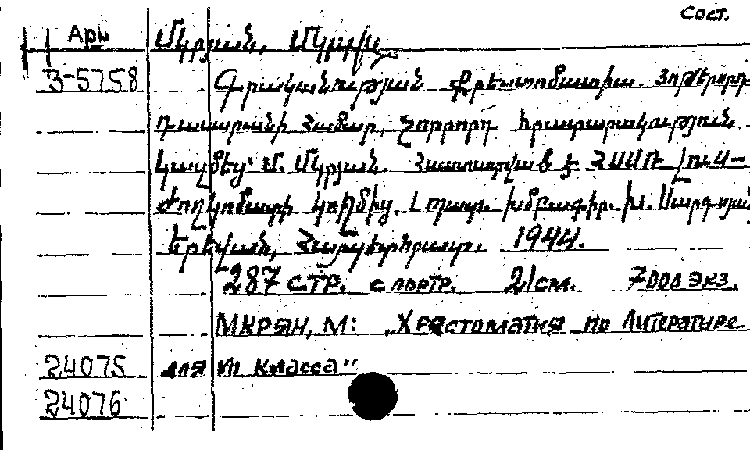 Сост.
Арм Մկրյան, Մկրտիչ
3-5758 Գրականության քրեստոմատիա յոթերորդ
դասարանի համար, չորրորդ հրատարակություն
կազմեց՝ Մ. Մկրյան. Հաստատված է ՀՍՍՌ լուս-
ժողկոմատի կողմից. Լ պատ. խմբագիր. Խ. Սարգսյան
Երևան, Հայպետհրատ. 1944.
287 стр. с портр. 21 см. 7000 экз.
Мкрян, М: „Хрестоматия по литературе
24075 для VII класса"
24076